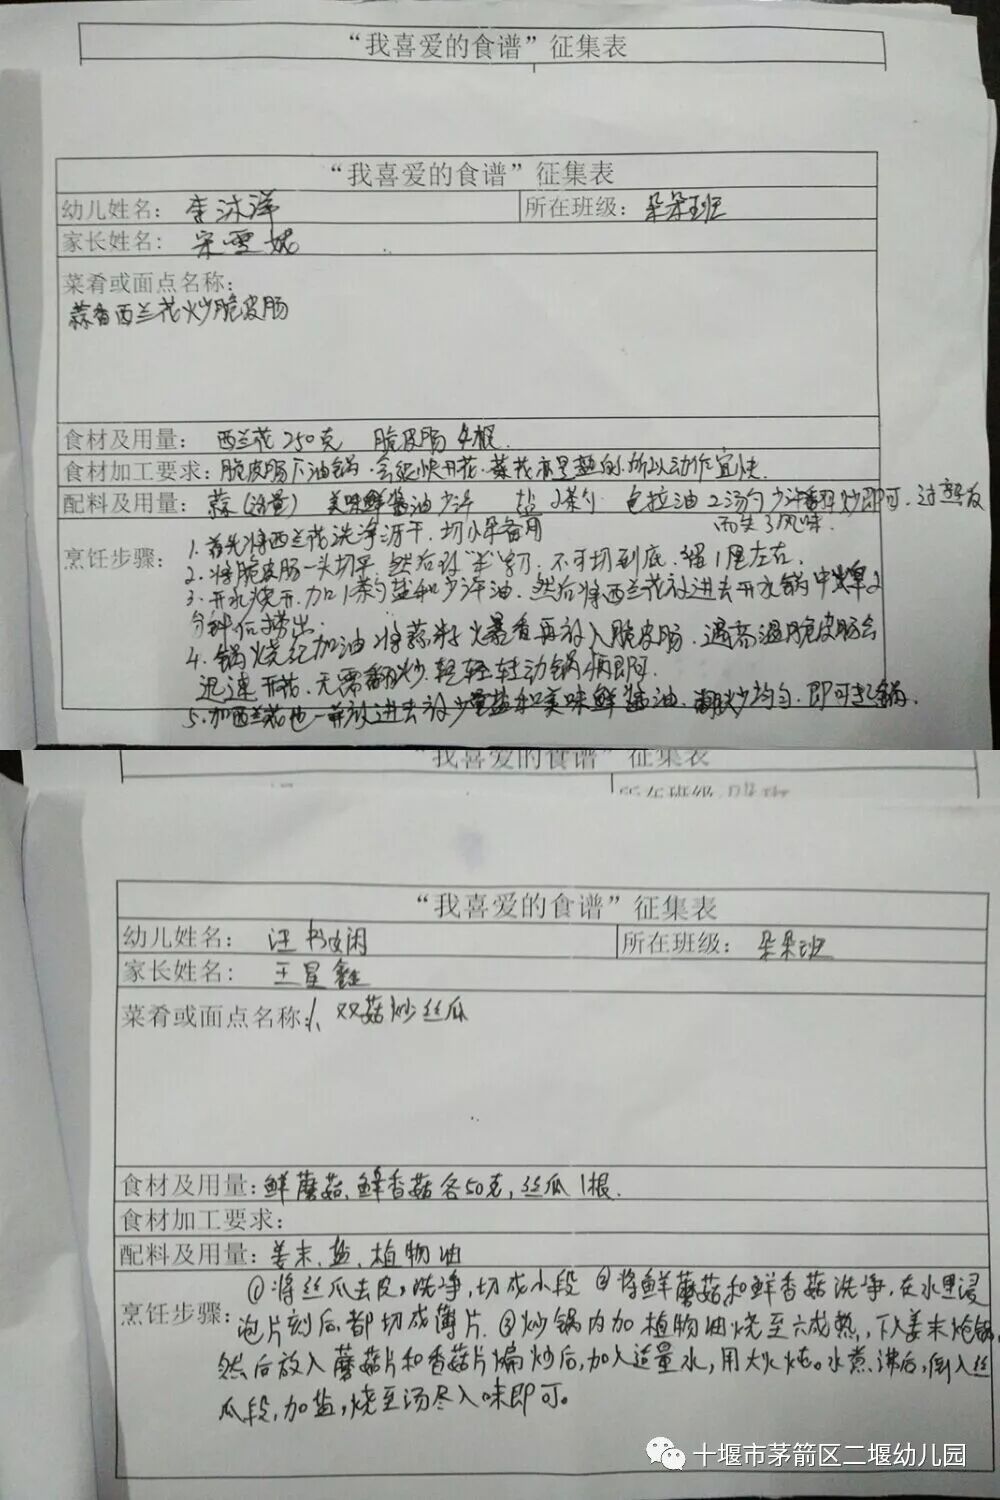 “我喜爱的食谱”征集表
“我喜爱的食谱”征集表
幼儿姓名: 李沐洋 所在班级: 朵朵班
家长姓名: 宋雪妮
菜肴或面点名称:
蒜香西兰花炒脆皮肠
食材及用量: 西兰花250克 脆皮肠4根.
食材加工要求: 脆皮肠下油锅.会很快开花.蒸花亦是益的.所以动作宜快.
配料及用量: 蒜(适量) 美味鲜酱油少许 盐2茶勺 色拉油2汤勺 少许翻炒即可.过熟反
而失了风味.
烹饪步骤: 1.首先将西兰花洗净沥干.切小朵备用
2.将脆皮肠一头切平,然后改“米”字刀.不可切到底.留1厘左右.
3.开水烧开.加1茶勺盐和少许油.然后将西兰花放进去开水锅中焯2
分钟后捞出.
4.锅烧红加油.将蒜粒火爆香再放入脆皮肠.遇高温脆皮肠会
迅速开花.无需翻炒.轻轻转动锅柄即可.
5.加西兰花也一并放进去放少量盐和美味鲜酱油.翻炒均匀.即可起锅.
“我喜爱的食谱”征集表
所在班级
“我喜爱的食谱”征集表
幼儿姓名: 汪书闲 所在班级: 朵朵班
家长姓名: 王星鑫
菜肴或面点名称: 1、双菇炒丝瓜
食材及用量: 鲜蘑菇、鲜香菇各50克,丝瓜1根.
食材加工要求:
配料及用量: 姜末、盐、植物油
烹饪步骤: ①将丝瓜去皮,洗净,切成小段 ②将鲜蘑菇和鲜香菇洗净,在水里浸
泡片刻后都切成薄片.③炒锅内加植物油烧至六成熟,下入姜末炝锅,
然后放入蘑菇片和香菇片煸炒后,加入适量水,用大火炖。水煮沸后,倒入丝
瓜段,加盐,烧至汤尽入味即可。
十堰市茅箭区二堰幼儿园